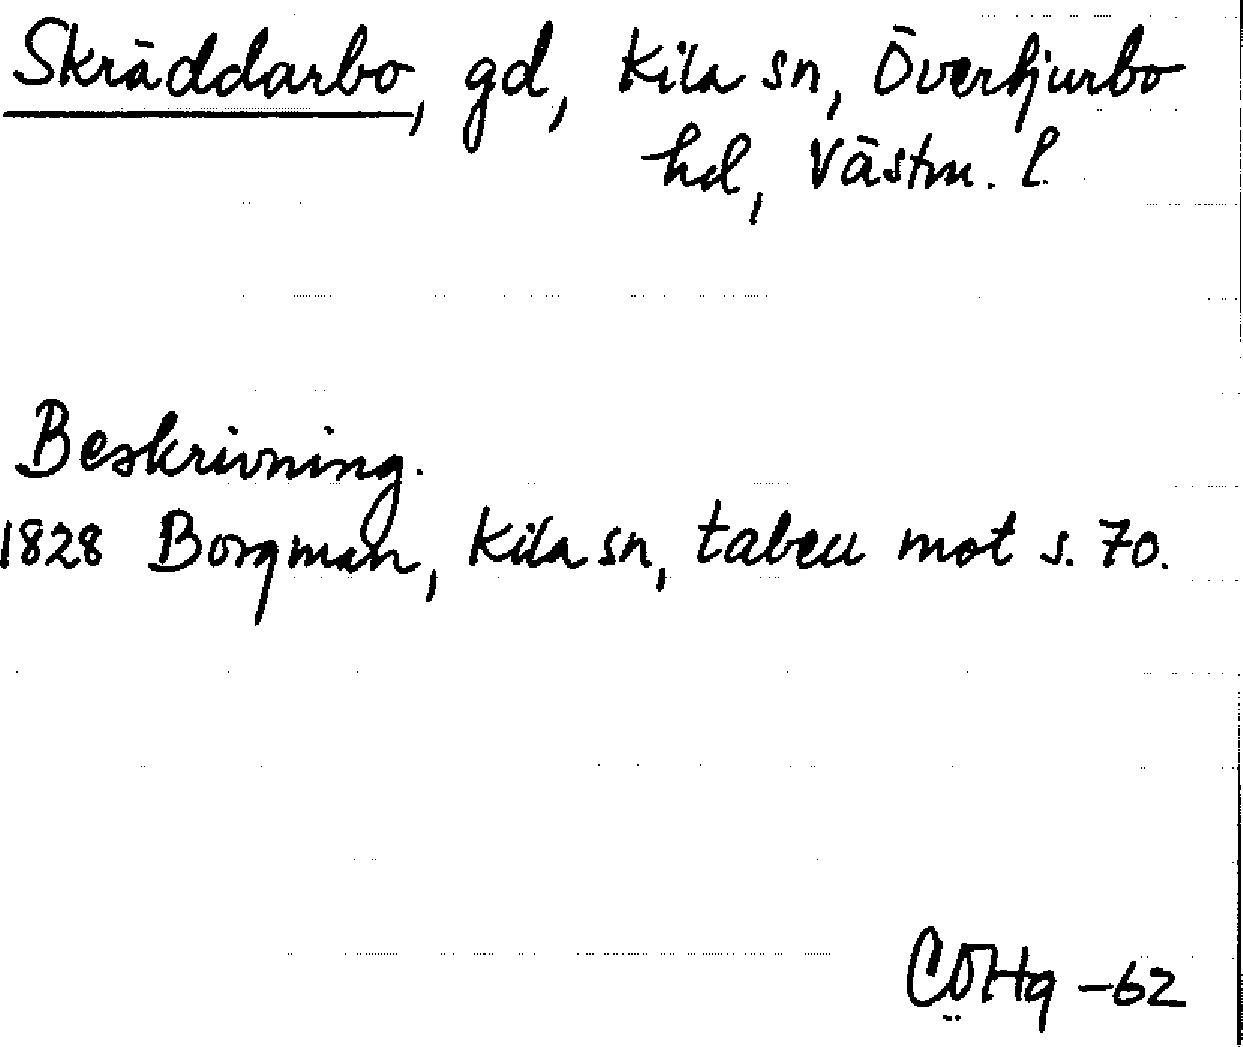 Skräddarbo, gd, Kila sn, Övertjurbo
hd, Västm. l.
Beskrivning.
1828 Borgman, Kila sn, tabell mot s. 70.
-62